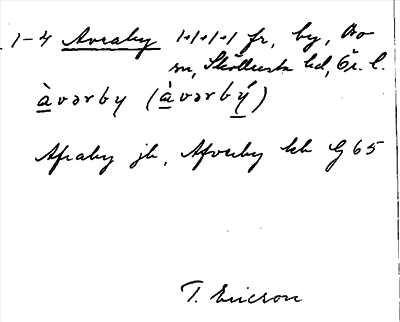 1-4 Avraby 1+1+1+1 fr, by, Bo
sn, Sköllersta hd, Ör. l.
àvərby (àvərbý)
Afraby jb, Afverby kb G 65
T. Ericson